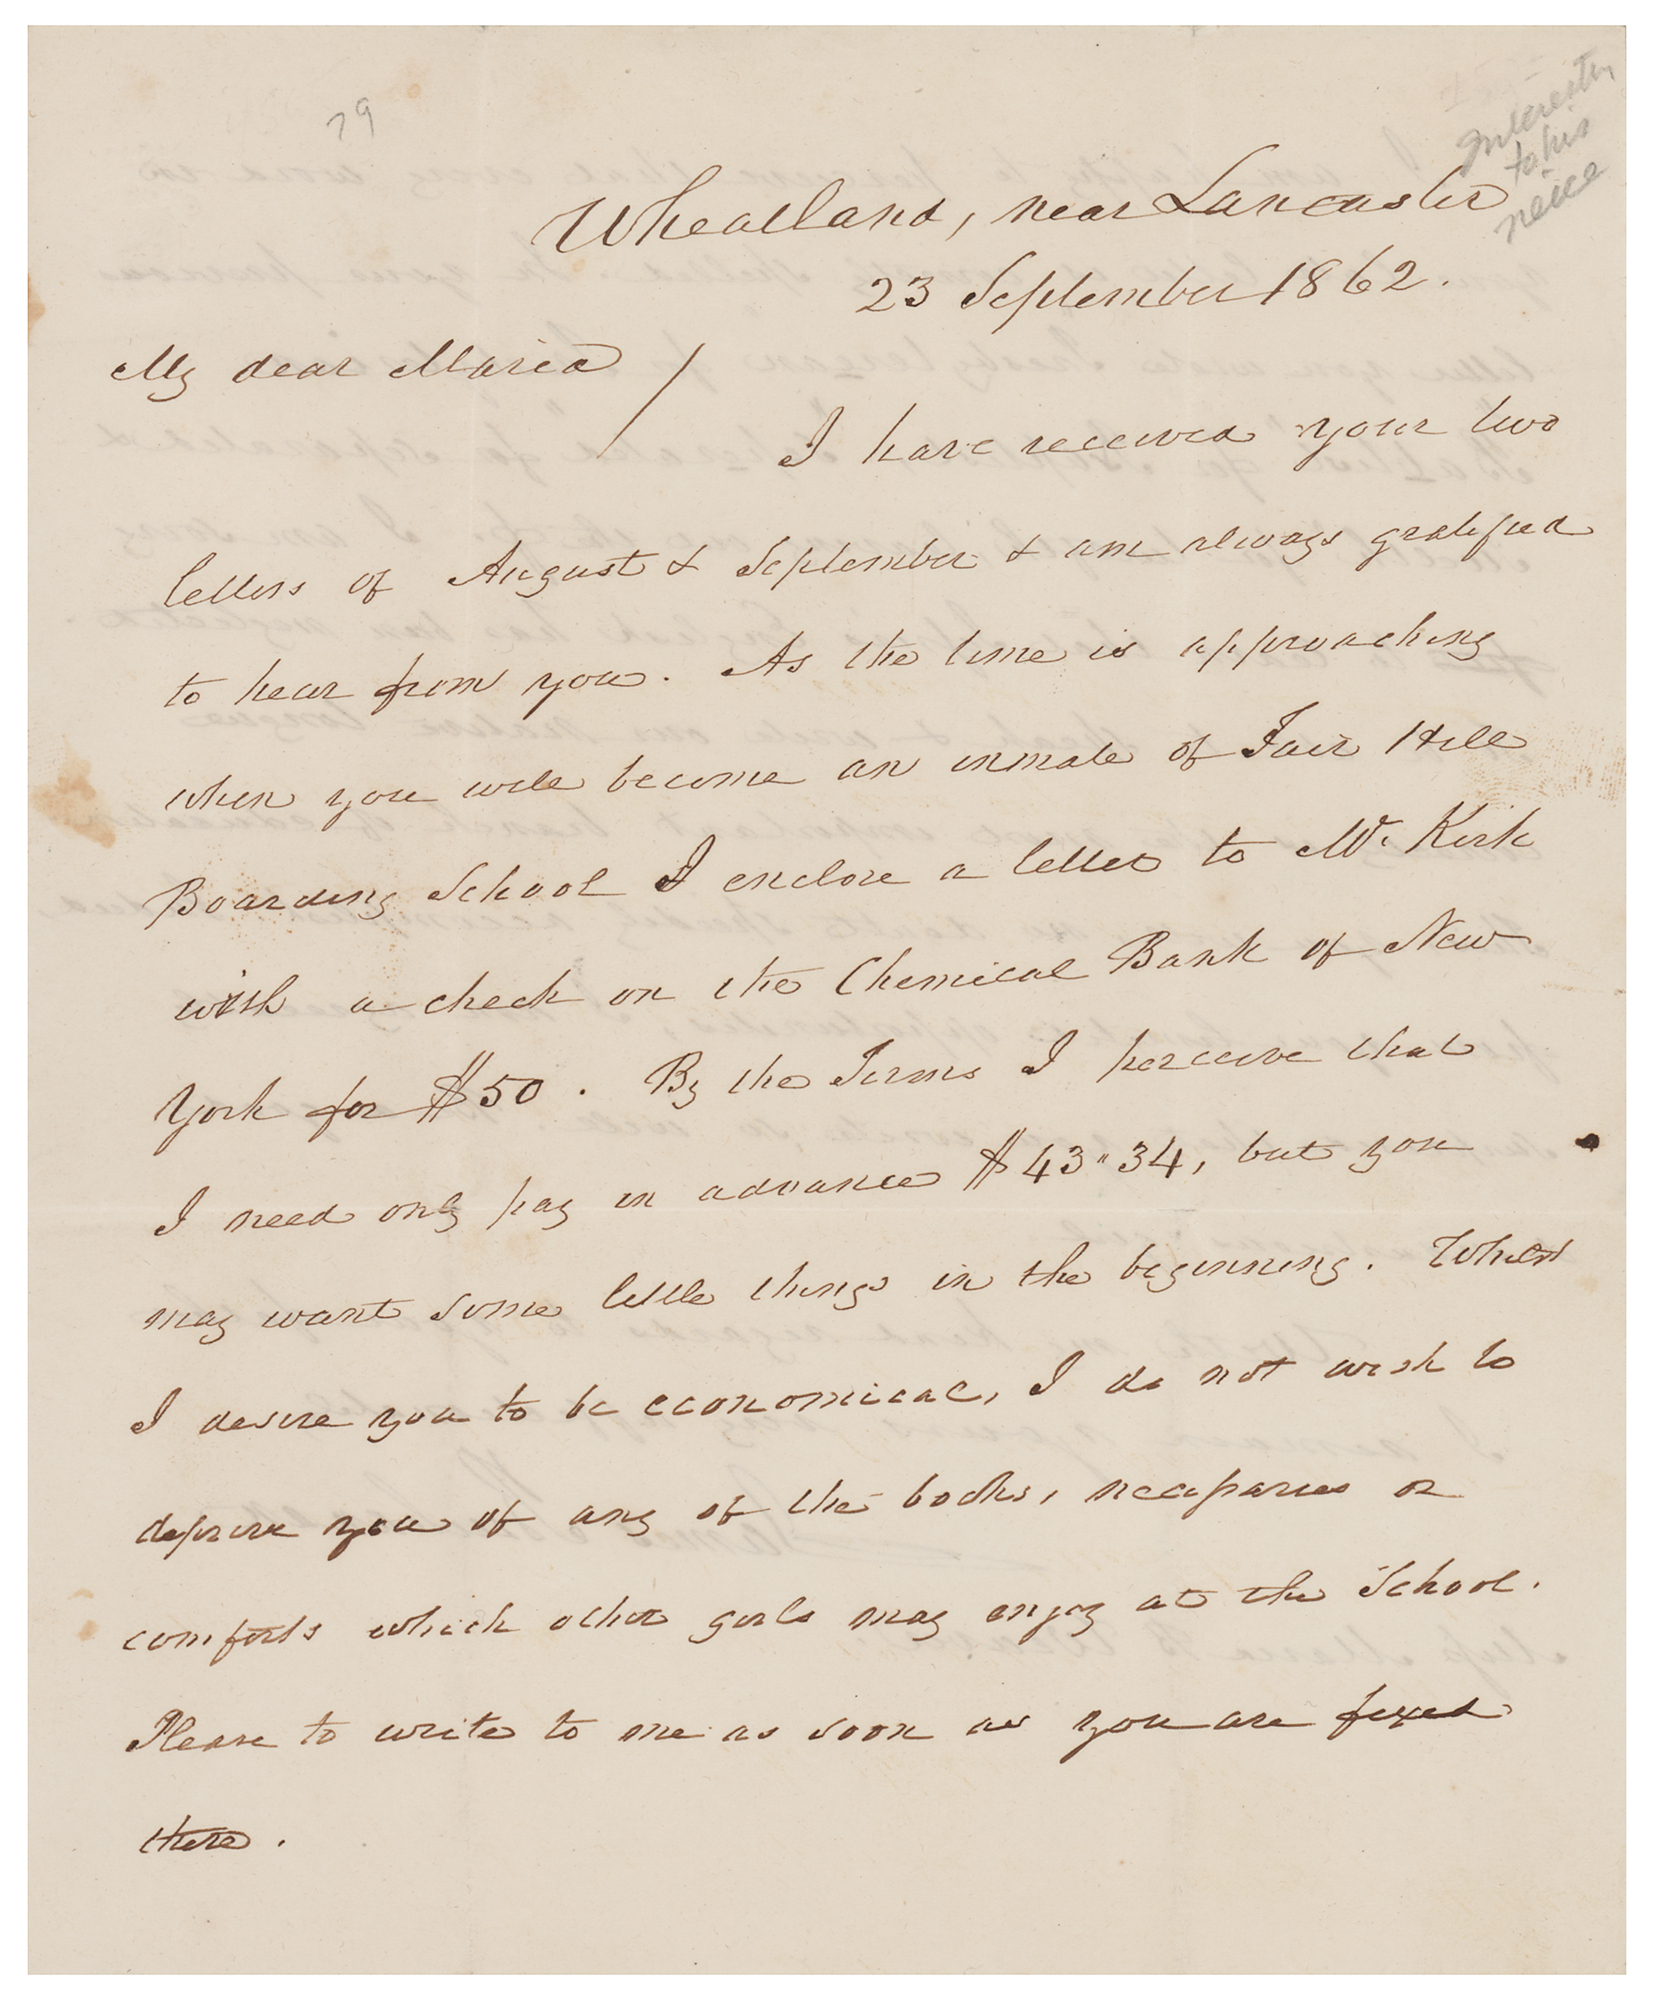 79
Interesting
to his
neice
Wheatland, near Lancaster
23 September 1862.
My dear Maria /
I have received your two
letters of August & September & am always gratified
to hear from you. As the time is approaching
when you will become an inmate of Fair Hill
Boarding School I enclose a letter to Mr. Kirk
with a check on the Chemical Bank of New
York for $50. By the Terms I perceive that
I need only pay in advance $43"34, but you
may want some little things in the beginning. Whilst
I desire you to be economical, I do not wish to
deprive you of any of the books, necessaries or
comforts which other girls may enjoy at the School.
Please to write to me as soon as you are fixed
there.